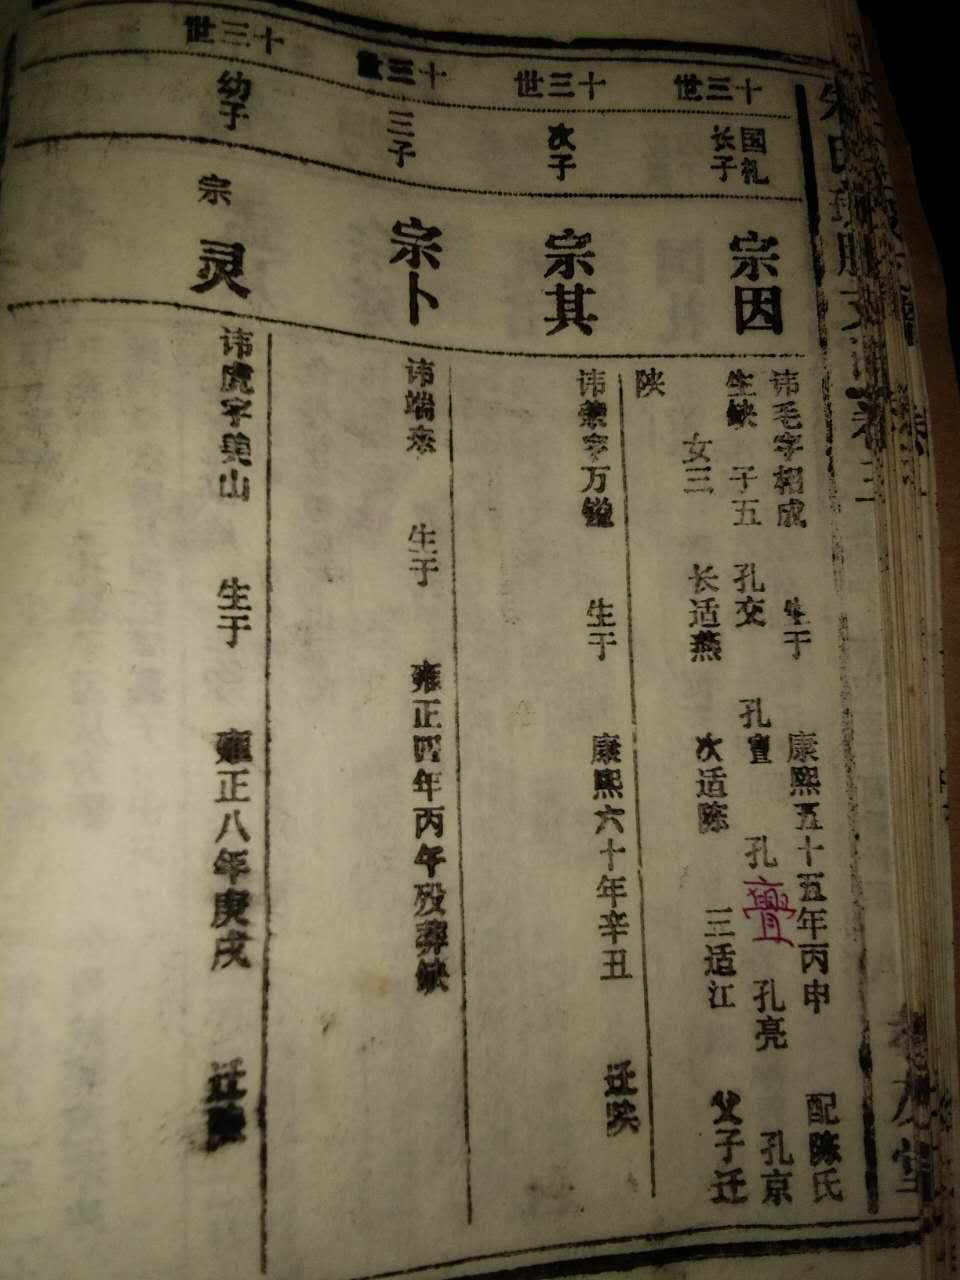 十三世
国礼
长子
宗因
讳毛字相成 生于 康熙五十五年丙申 配陈氏
生缺 子五 孔交 孔亶 孔亹 孔亮 孔京
女三 长适燕 次适陈 三适江 父子迁
陕
十三世
次子
宗其
讳荣字万镒 生于 康熙六十年辛丑 迁陕
十三世
三子
宗卜
讳端 生于 雍正四年丙午殁葬缺
十三世
幼子
宗灵
讳虎字美山 生于 雍正八年庚戌 迁陕